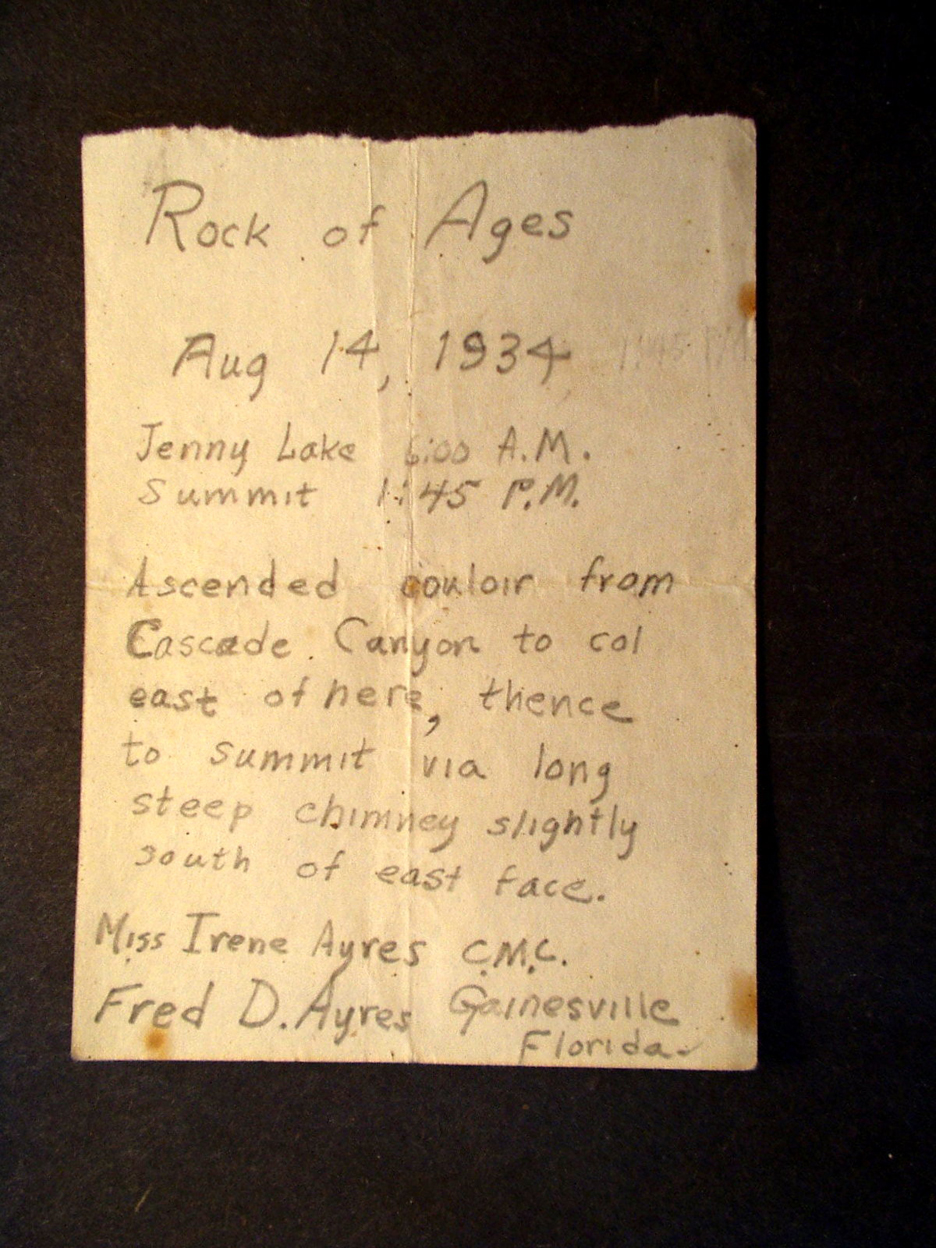 Rock of Ages
Aug 14, 1934 1:45 P.M.
Jenny Lake 6:00 A.M.
Summit 1:45 P.M.
Ascended couloir from
Cascade Canyon to col
east of here, thence
to summit via long
steep chimney slightly
south of east face.
Miss Irene Ayres C.M.C.
Fred D. Ayres Gainesville
Florida